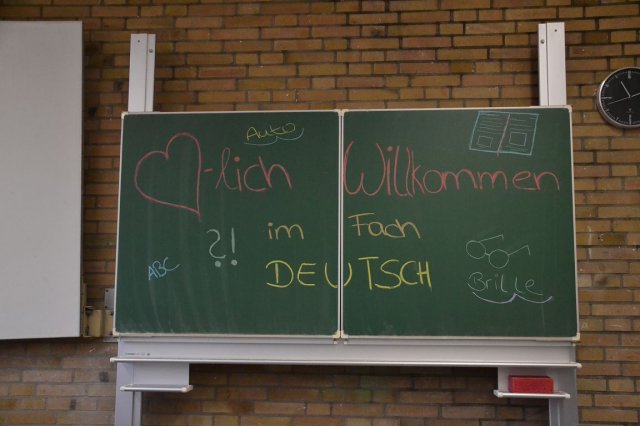 Auto
♡-lich Willkommen
?! im Fach
ABC DEUTSCH
Brille